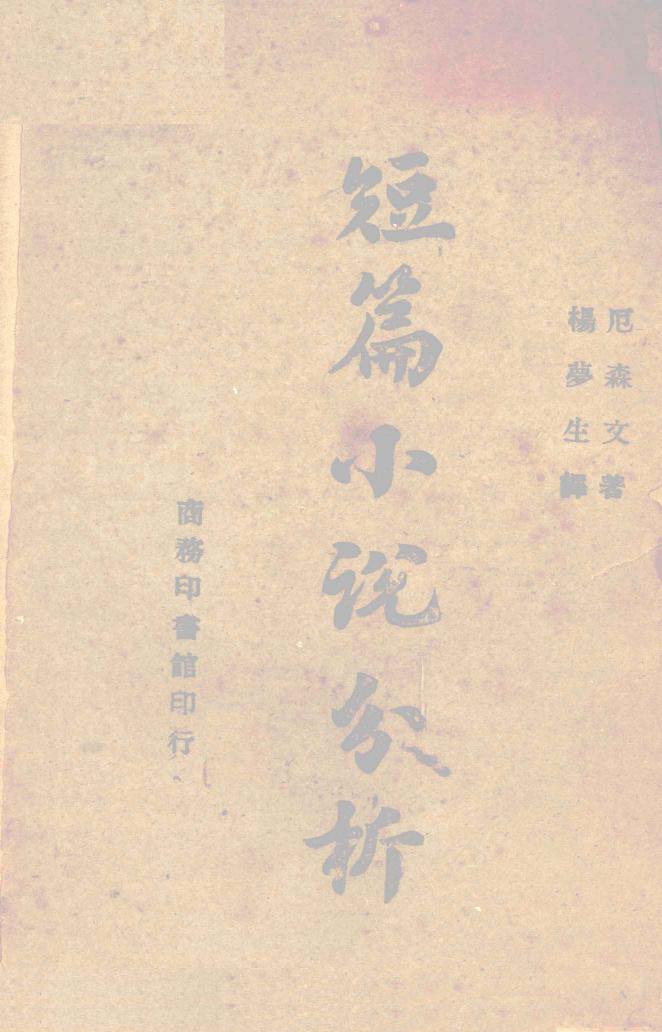 厄森文著
楊夢生譯
短篇小說分析
商務印書館印行